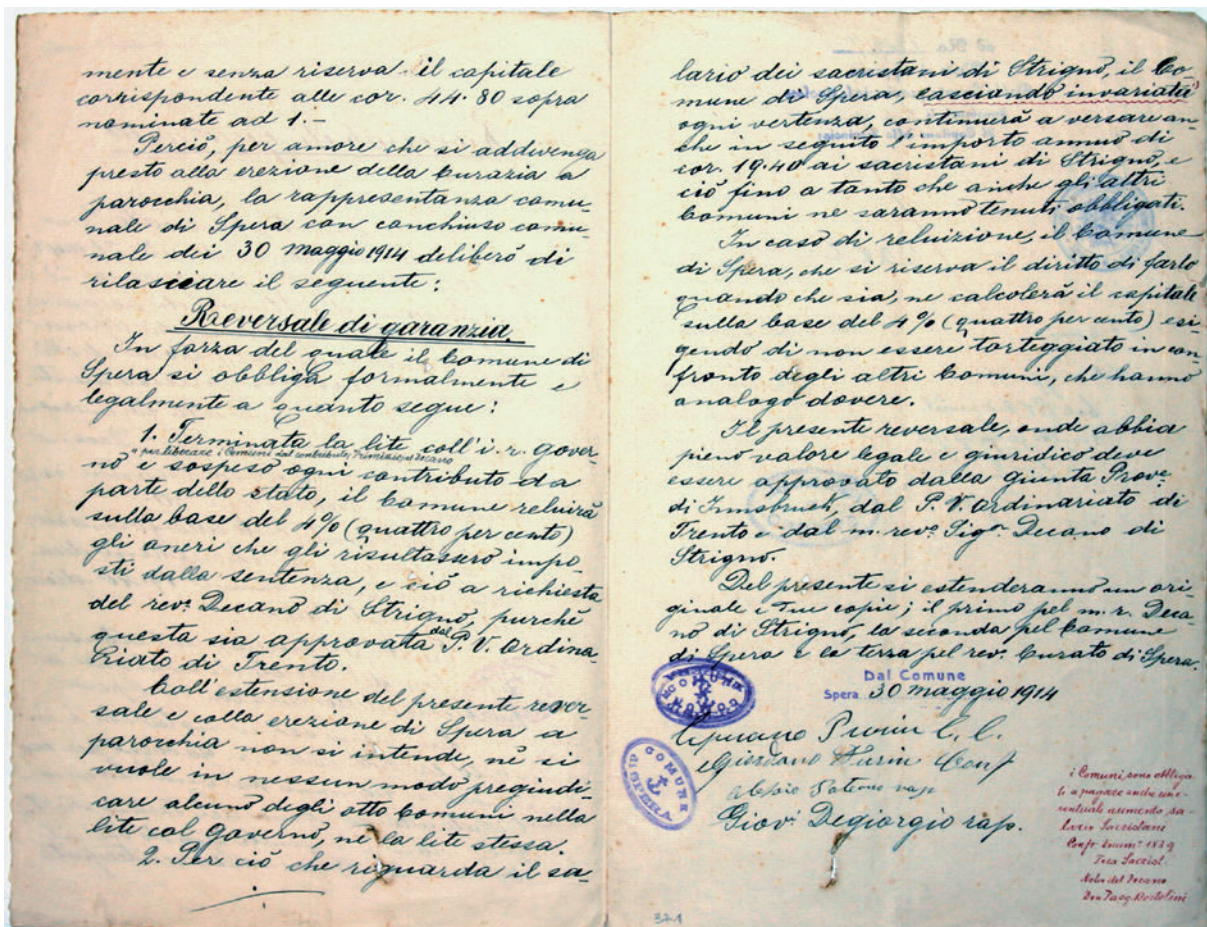 mente e senza riserva il capitale
corrispondente alle cor. 44.80 sopra
nominate ad 1.-
Perciò, per amore che si addivenga
presto alla erezione della Curazia a
parocchia, la rappresentanza comu-
nale di Spera con conchiuso comu-
nale dei 30 Maggio 1914 deliberò di
rilasciare il seguente:
Reversale di garanzia.
In forza del quale il Comune di
Spera si obbliga formalmente e
legalmente a quanto segue:
1. Terminata la lite coll'i. r. gover-
" per liberare i Comuni dal contributo, Primissari e Decano
no e sospeso ogni contributo da
parte dello stato, il Comune reluirà
sulla base del 4% (quattro per cento)
gli oneri che gli risultassero impo
sti dalla sentenza, e ciò a richiesta
del rev. Decano di Strigno, purchè
questa sia approvata dal P. V. Ordina-
riato di Trento.
Coll'estensione del presente rever-
sale e colla erezione di Spera a
parocchia non si intende, nè si
vuole in nessun modo pregiudi-
care alcuno degli otto Comuni nella
lite col Governo, nè la lite stessa.
2. Per ciò che riguarda il sa-
lario dei sacristani di Strigno, il Co-
mune di Spera, lasciando invariata
ogni vertenza, continuerà a versare an-
che in seguito l'importo annuo di
cor. 19.40 ai sacristani di Strigno, e
ciò fino a tanto che anche gli altri
Comuni ne saranno tenuti, obbligati.
In caso di reluizione, il Comune
di Spera, che si riserva il diritto di farlo
quando che sia, ne calcolerà il capitale
sulla base del 4% (quattro per cento) esi
gendo di non essere torteggiato in con-
fronto degli altri Comuni, che hanno
analogo dovere.
Il presente reversale, onde abbia
pieno valore legale e giuridico deve
essere approvato dalla Giunta Prov.
di Innsbruck, dal P. V. Ordinariato di
Trento e dal m. rev. Sig. Decano di
Strigno.
Del presente si estenderanno un ori-
ginale e due copie; il primo pel m. r. Deca-
no di Strigno, la seconda pel Comune
di Spera e la terza pel rev. Curato di Spera.
Dal Comune
Spera 30 Maggio 1914
COMUNE
Cipriano Purin C. C.
Giordano Purin Conf
COMUNE DI SPERA
Paterno rap
Giov. Degiorgio rap.
i Comuni sono obbliga
ti a pagare anche
aumento sa-
lario Sacristani
Confr. 1839
Sacrist.
Nota del Decano
Don Pasq. Bortolini
371